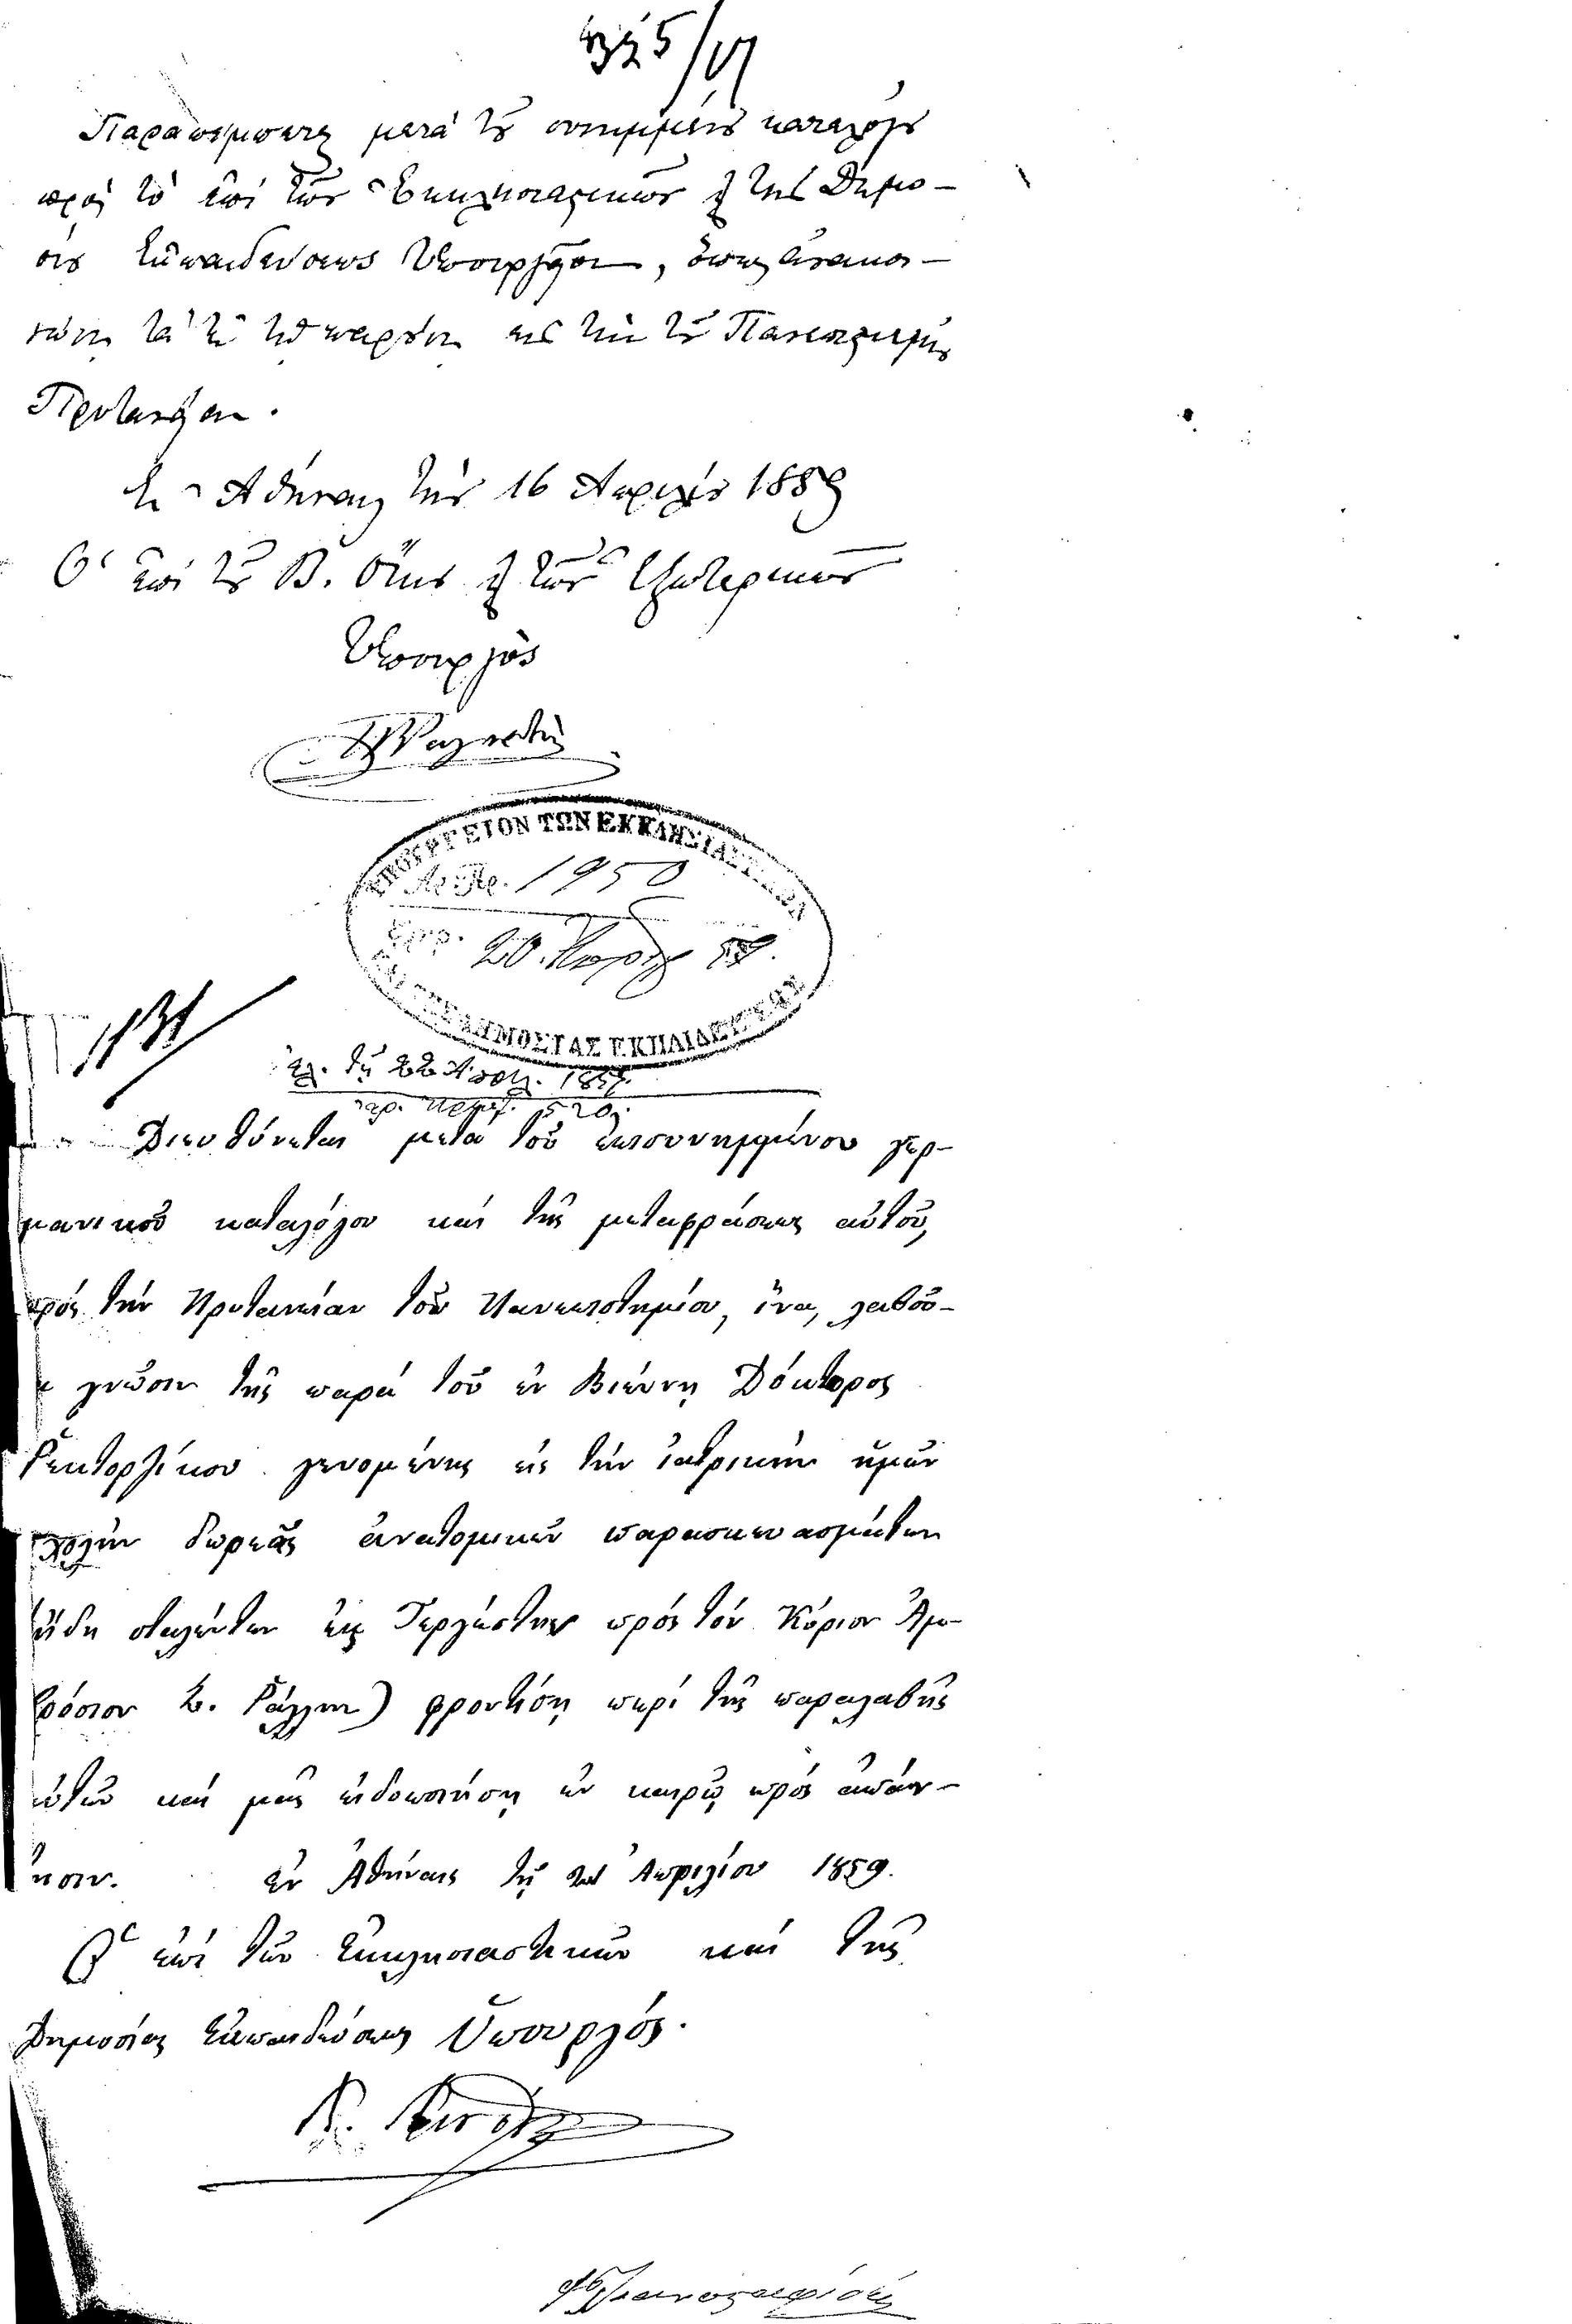 Παραπέμπεται μετὰ τοῦ συνημμένου καταλόγου
πρὸς τὸ ἐπὶ τῶν Ἐκκλησιαστικῶν καὶ τῆς Δημο-
σίου Ἐκπαιδεύσεως Ὑπουργεῖον, ὅπως ἀνακοι-
νώσῃ τὰ ἐν τῷ παρόντι εἰς τὴν τοῦ Πανεπιστημίου
Πρυτανείαν.
Ἐν Ἀθήναις τὴν 16 Ἀπριλίου 1859
Ὁ ἐπὶ τοῦ Β. Οἴκου καὶ τῶν Ἐξωτερικῶν
Ὑπουργὸς
ΥΠΟΥΡΓΕΙΟΝ ΤΩΝ ΕΚΚΛΗΣΙΑΣΤΙΚΩΝ
Ἀρ. Πρ. 1950
20 Ἀπριλ 59.
ΚΑΙ ΤΗΣ ΔΗΜΟΣΙΑΣ ΕΚΠΑΙΔΕΥΣΕΩΣ
τῇ 22 Ἀπριλ. 1859.
Διευθύνεται μετὰ τοῦ ἐπισυνημμένου γερ-
μανικοῦ καταλόγου καὶ τῆς μεταφράσεως αὐτοῦ,
πρὸς τὴν Πρυτανείαν τοῦ Πανεπιστημίου, ἵνα, λαβοῦ-
σα γνῶσιν τῆς παρὰ τοῦ ἐν Βιέννῃ Δόκτορος
Ῥεκτορζίκου γενομένης εἰς τὴν ἰατρικὴν ἡμῶν
σχολὴν δωρεᾶς ἀνατομικῶν παρασκευασμάτων
ἤδη σταλέντων ἐκ Τεργέστης πρὸς τὸν Κύριον Ἀμ-
βρόσιον Σ. Ράλλην) φροντίσῃ περὶ τῆς παραλαβῆς
αὐτῶν καὶ μᾶς εἰδοποιήσῃ ἐν καιρῷ πρὸς ἀπάν-
τησιν. ἐν Ἀθήναις τῇ Ἀπριλίου 1859.
Ὁ ἐπὶ τῶν Ἐκκλησιαστικῶν καὶ τῆς
Δημοσίας Ἐκπαιδεύσεως Ὑπουργός.